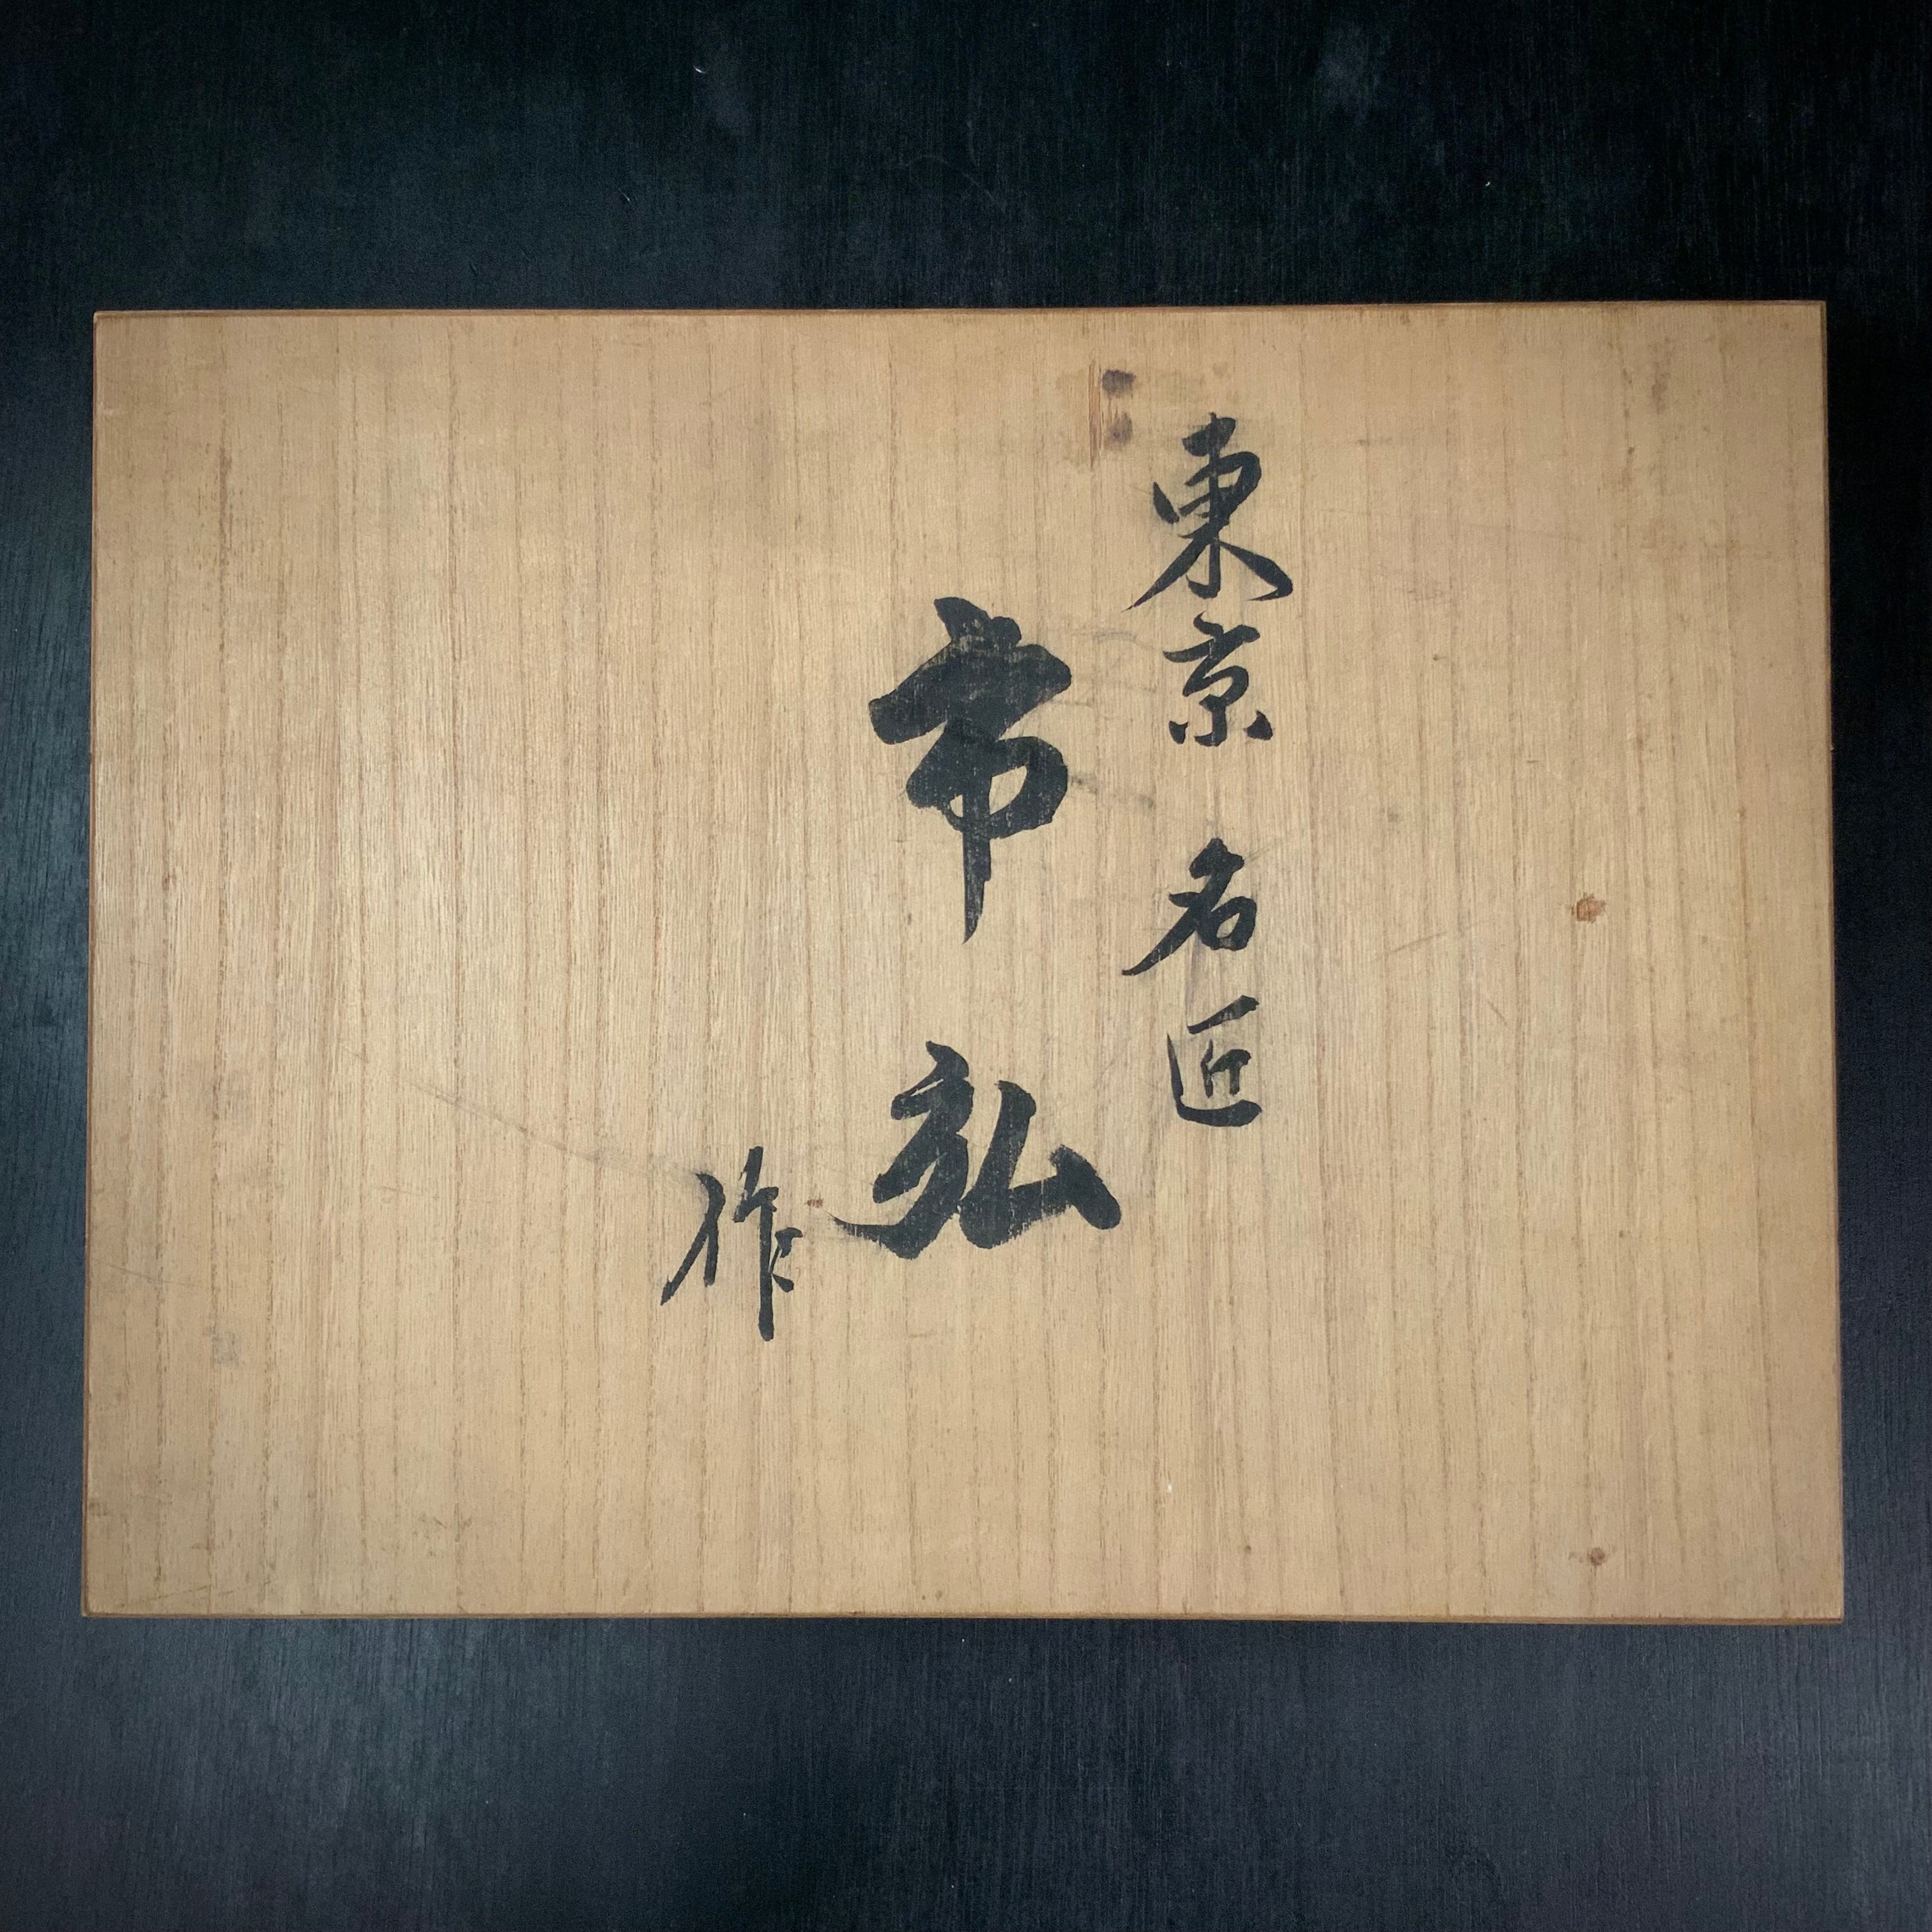 東京 名匠
市弘
作